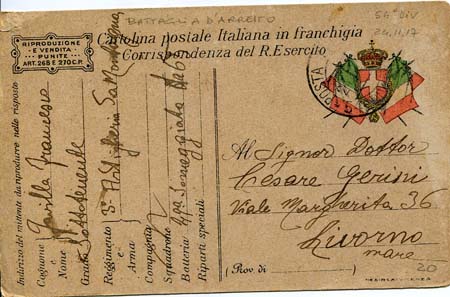 BATTAGLIA D'ARRESTO
56ª DIV
24.11.17
RIPRODUZIONE
E VENDITA
PUNITE
ART. 268 E 270 C.P.
Cartolina postale Italiana in franchigia
Corrispondenza del R. Esercito
POSTA
Indirizzo del mittente da riprodurre nelle risposte
Cognome Francesco
e
Nome
Grado Sottotenente
Reggimento 3º Artiglieria da Montagna
e
Arma
Compagnia
Squadrone
Batteria
Riparti speciali
Al Signor Dottor
Cesare Gerini
Viale Margherita 36
Livorno
mare
(Prov. di )
20